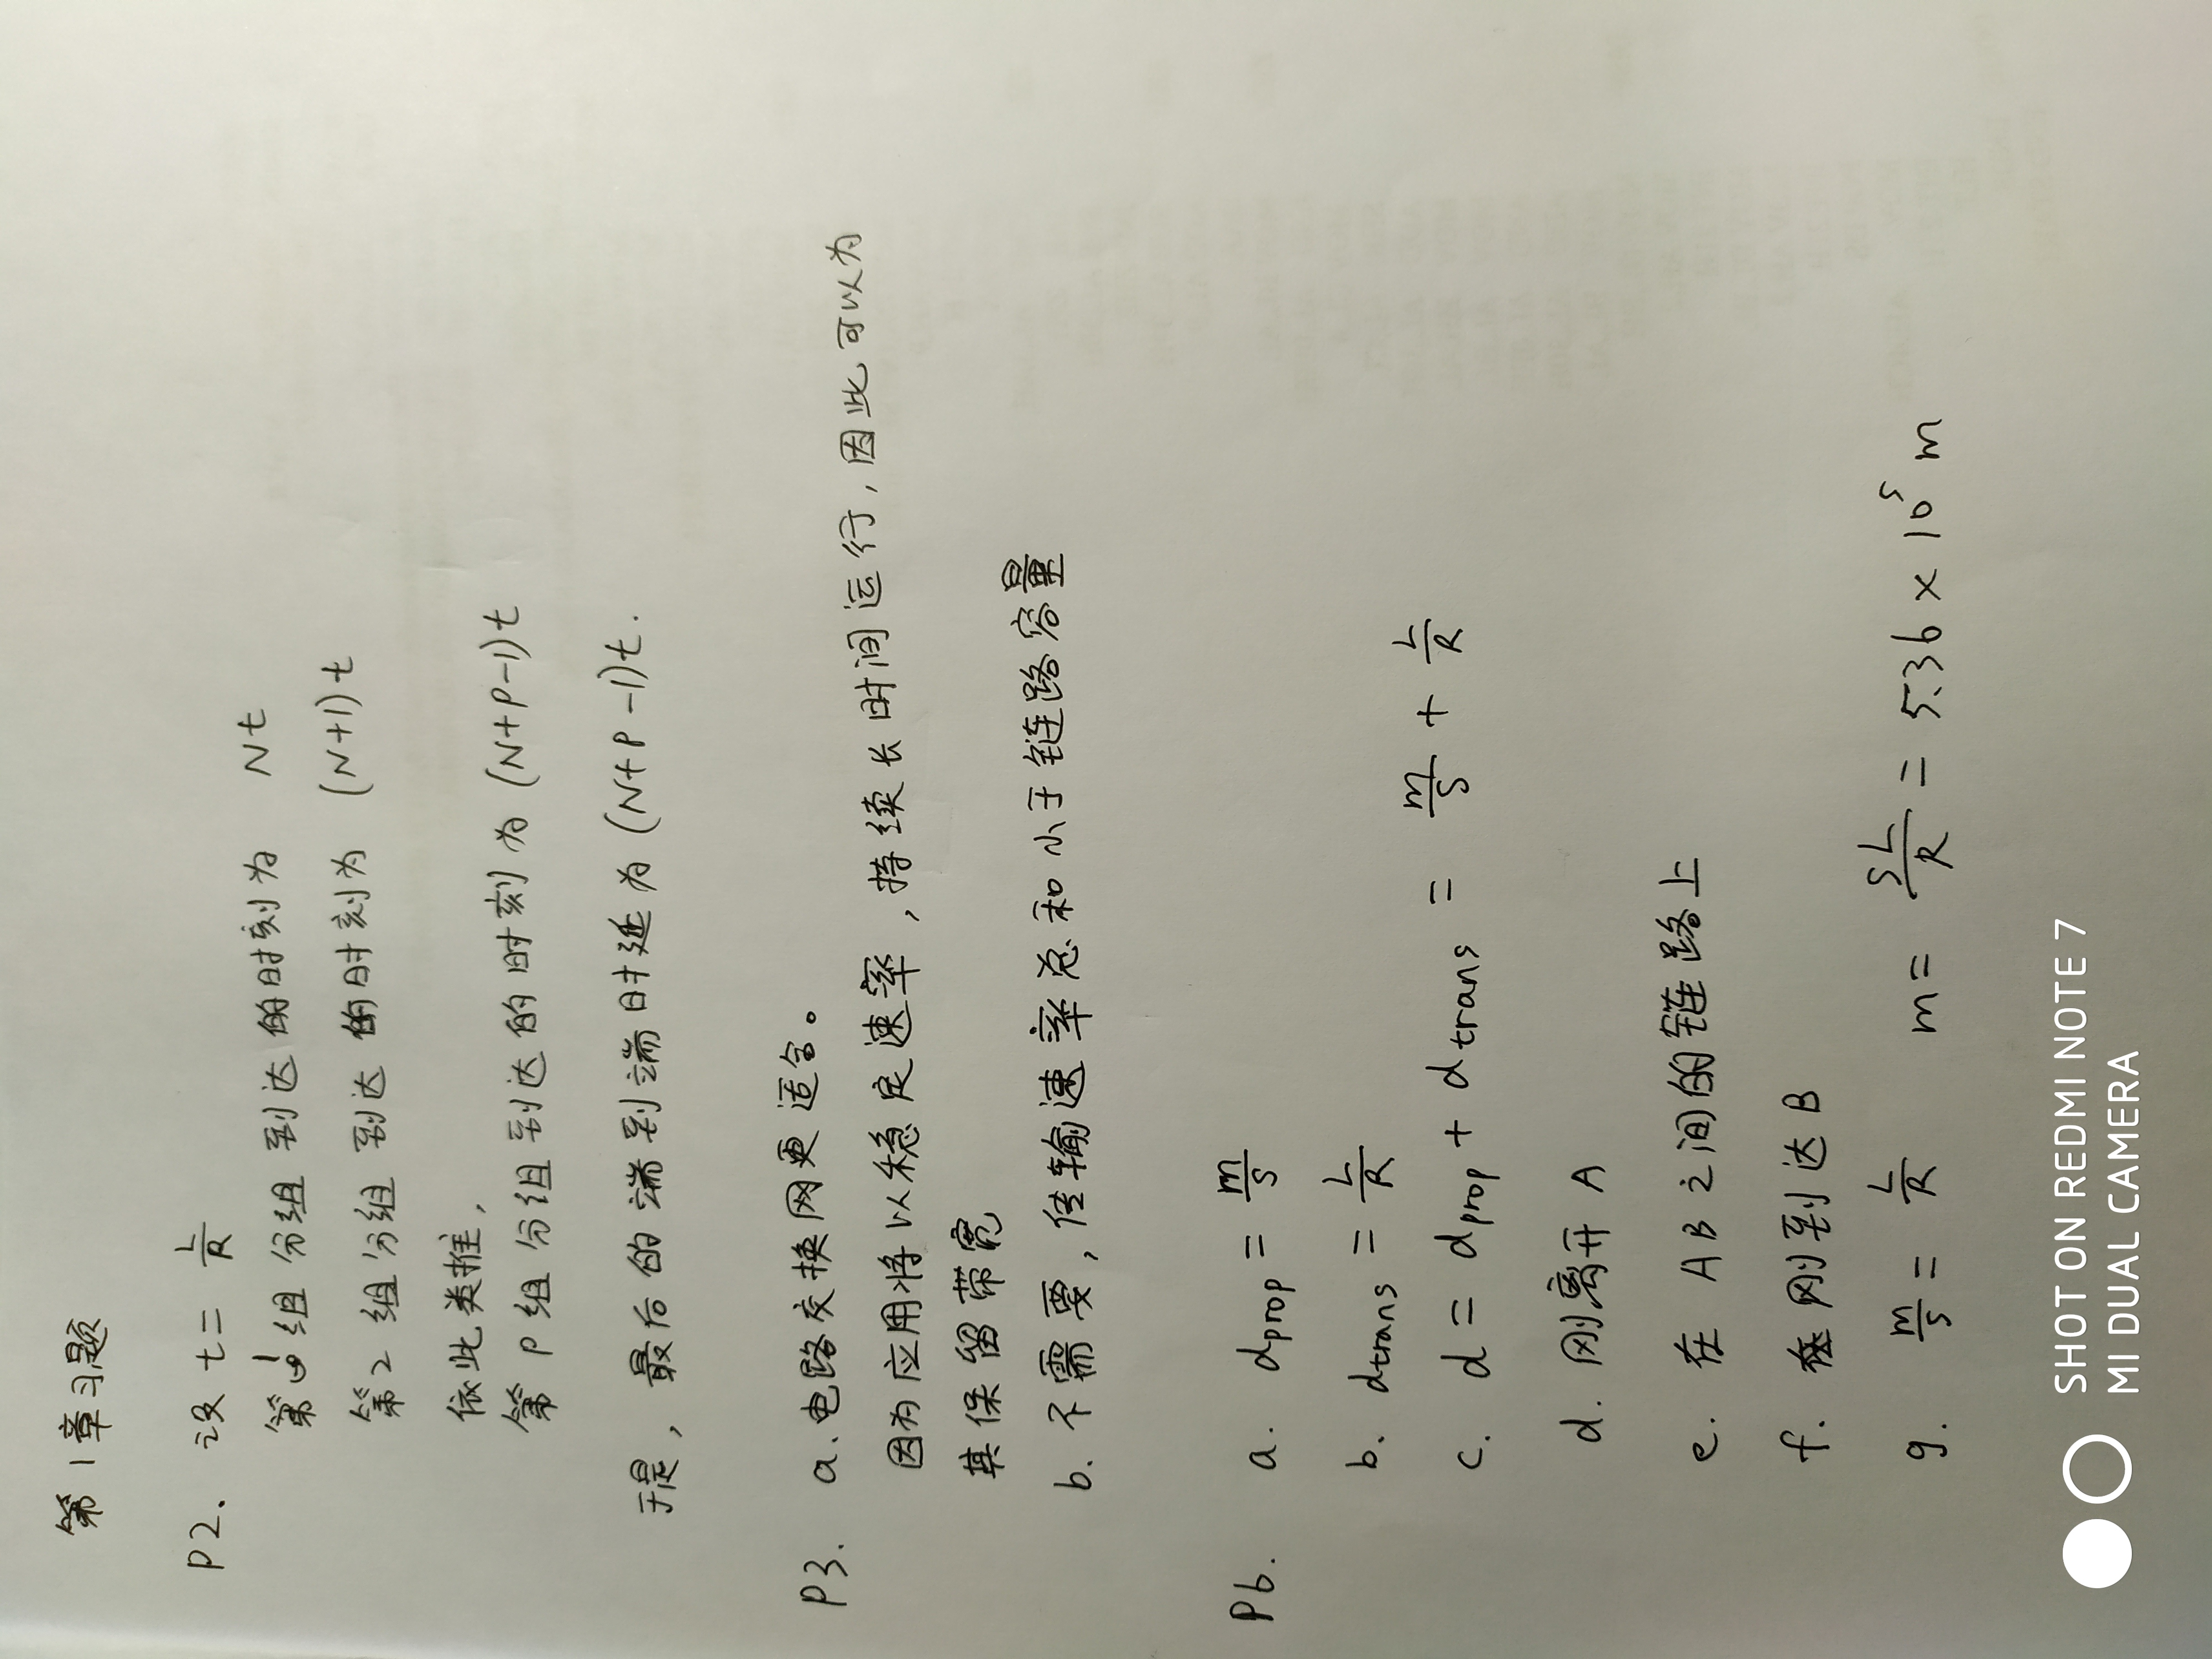 第1章习题
P2. 设 t = L/R
第1组分组到达的时刻为 Nt
第2组分组到达的时刻为 (N+1)t
依此类推,
第P组分组到达的时刻为 (N+P-1)t
于是, 最后的端到端时延为 (N+P-1)t.
P3. a. 电路交换网更适合。
因为应用将以稳定速率, 持续长时间运行, 因此可以为
其保留带宽
b. 不需要, 传输速率总和小于链路容量
P6. a. dprop = m/s
b. dtrans = L/R
c. d = dprop + dtrans = m/s + L/R
d. 刚离开 A
e. 在 AB 之间的链路上
f. 刚到达 B
g. m/s = L/R m = sL/R = 5.36 × 10⁵ m
SHOT ON REDMI NOTE 7
MI DUAL CAMERA